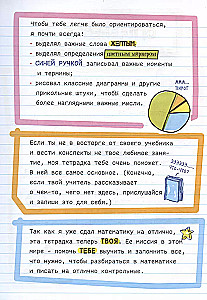 Чтобы тебе легче было ориентироваться,
я почти всегда:
- выделял важные слова ЖЕЛТЫМ;
- выделял определения
- СИНЕЙ РУЧКОЙ записывал важные моменты
и термины;
- рисовал классные диаграммы и другие
прикольные штуки, чтобы сделать
более наглядными важные мысли.
МММ...
ПИРОГ
Если ты не в восторге от своего учебника
и вести конспекты не твое любимое заня-
тие, моя тетрадка тебе очень поможет.
В ней все самое основное. (Конечно,
если твой учитель рассказывает
о чем-то, чего нет здесь, прислушайся
и запиши это для себя.)
Так как я уже сдал математику на отлично,
эта тетрадка теперь ТВОЯ. Ее миссия в этом
мире - помочь ТЕБЕ выучить и запомнить все,
что нужно, чтобы разбираться в математике
и писать на отлично контрольные.